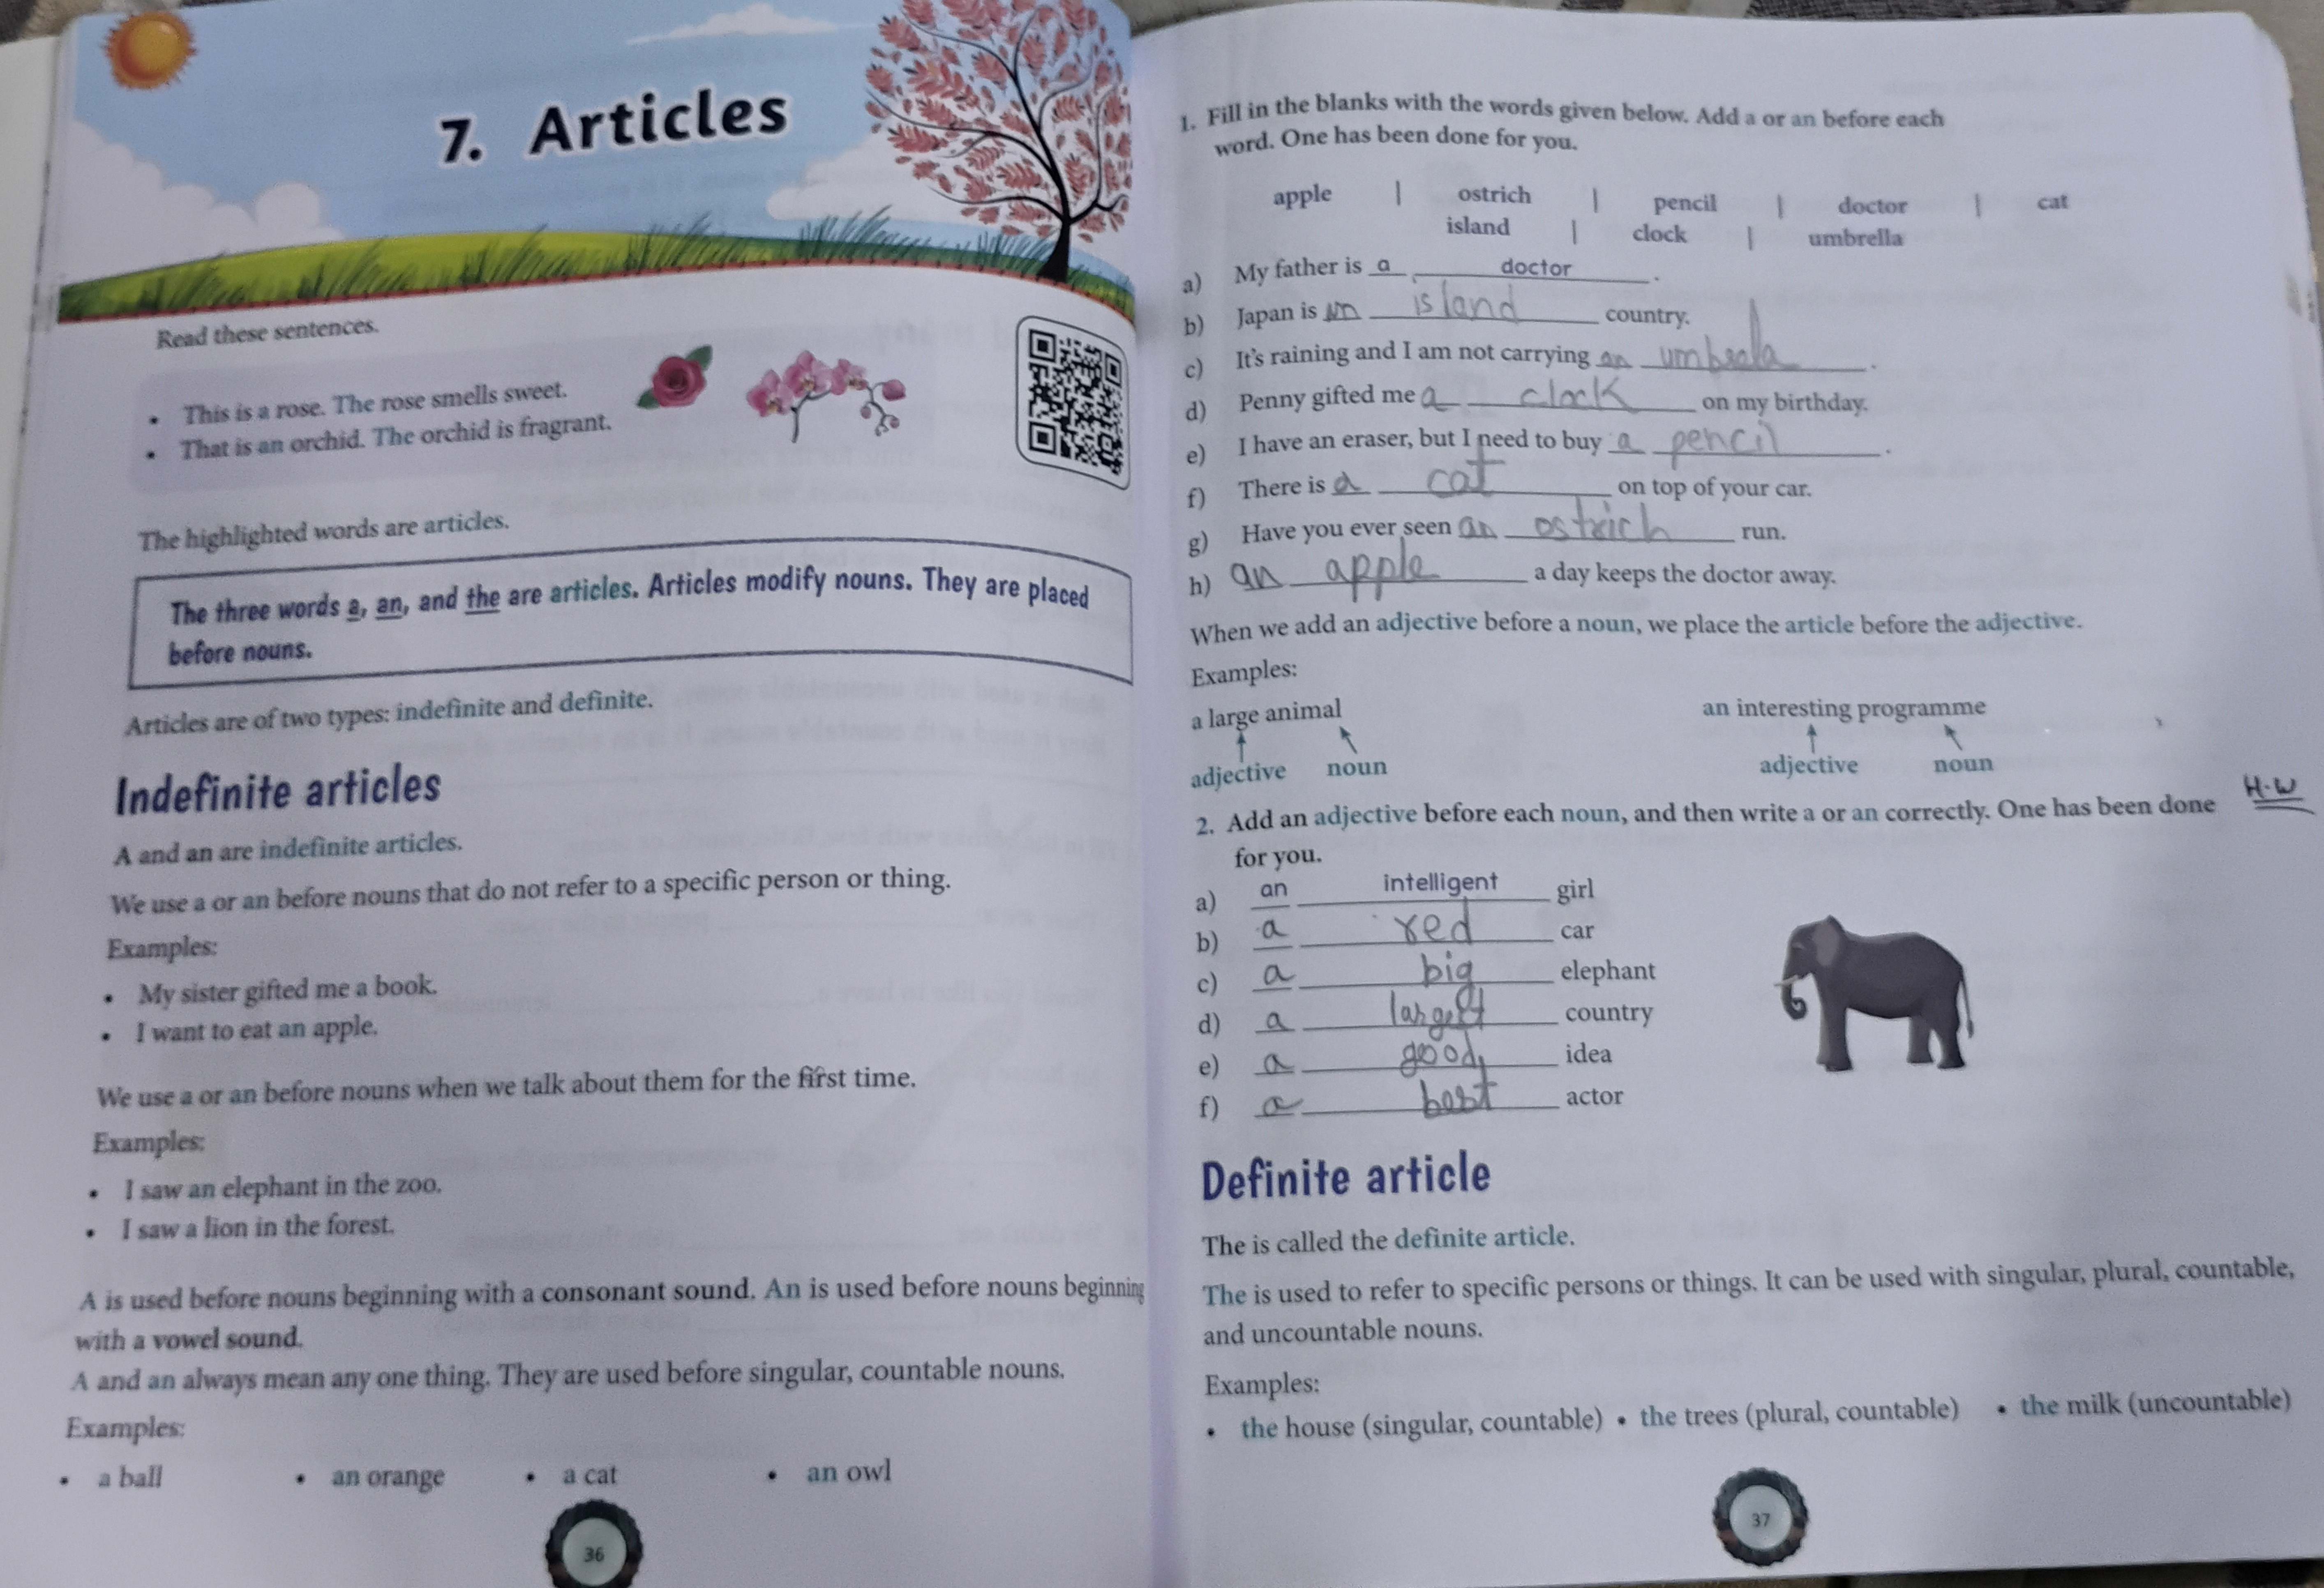 7. Articles
Read these sentences.
• This is a rose. The rose smells sweet.
• That is an orchid. The orchid is fragrant.
The highlighted words are articles.
The three words a, an, and the are articles. Articles modify nouns. They are placed
before nouns.
Articles are of two types: indefinite and definite.
Indefinite articles
A and an are indefinite articles.
We use a or an before nouns that do not refer to a specific person or thing.
Examples:
• My sister gifted me a book.
• I want to eat an apple.
We use a or an before nouns when we talk about them for the first time.
Examples:
• I saw an elephant in the zoo.
• I saw a lion in the forest.
A is used before nouns beginning with a consonant sound. An is used before nouns beginning
with a vowel sound.
A and an always mean any one thing. They are used before singular, countable nouns.
Examples:
• a ball • an orange • a cat • an owl
36
1. Fill in the blanks with the words given below. Add a or an before each
word. One has been done for you.
apple | ostrich | pencil | doctor | cat
island | clock | umbrella
a) My father is a doctor.
b) Japan is an island country.
c) It's raining and I am not carrying an umbrela.
d) Penny gifted me a clock on my birthday.
e) I have an eraser, but I need to buy a pencil.
f) There is a cat on top of your car.
g) Have you ever seen an ostrich run.
h) an apple a day keeps the doctor away.
When we add an adjective before a noun, we place the article before the adjective.
Examples:
a large animal an interesting programme
adjective noun adjective noun
2. Add an adjective before each noun, and then write a or an correctly. One has been done H.W
for you.
a) an intelligent girl
b) a red car
c) a big elephant
d) a country
e) a good idea
f) a best actor
Definite article
The is called the definite article.
The is used to refer to specific persons or things. It can be used with singular, plural, countable,
and uncountable nouns.
Examples:
• the house (singular, countable) • the trees (plural, countable) • the milk (uncountable)
37